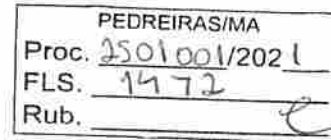 PEDREIRAS/MA
Proc. 2501001/2021
FLS. 1472
Rub.